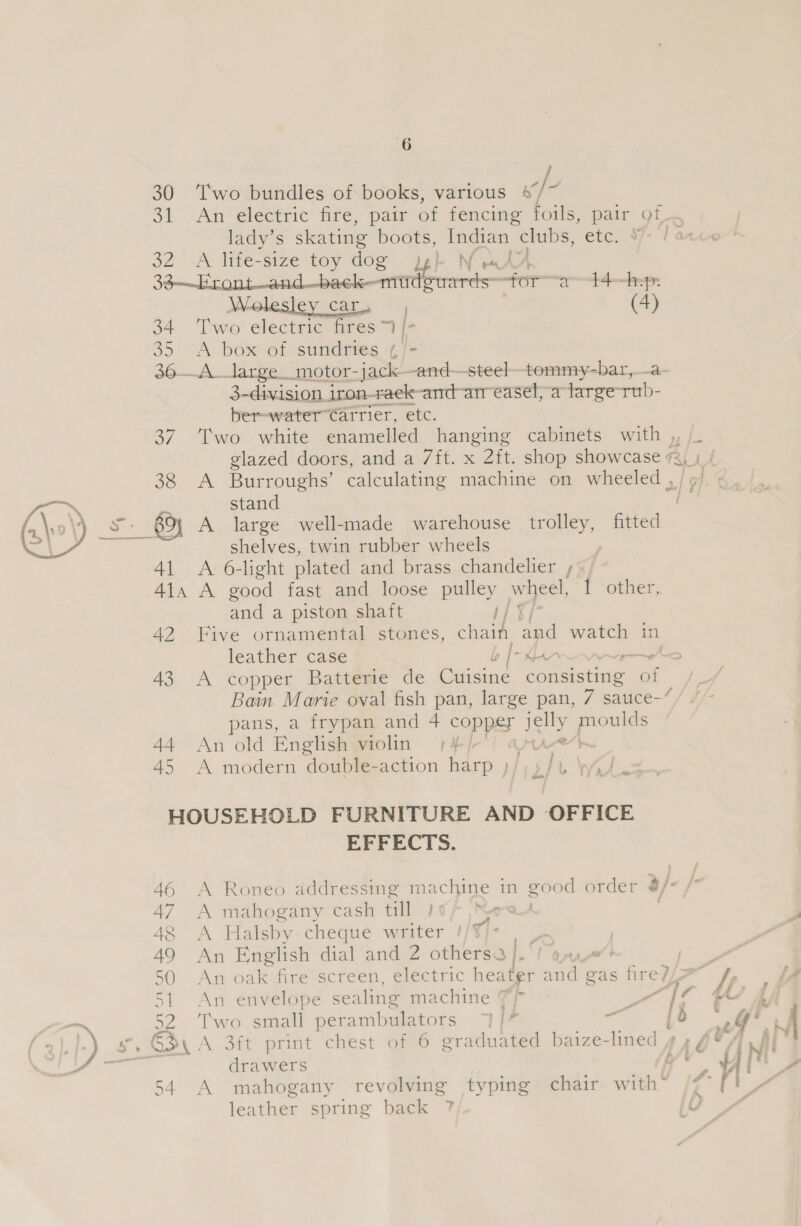 6
30 Two bundles of books, various
31 An electric fire, pair of fencing foils, pair of
lady's skating boots, Indian clubs, etc.
32 A life-size toy dog
33 Front and back mudguards for a 14-h.p.
Wolesley car. (4)
34 Two electric fires
35 A box of sundries
36 A large motor-jack and steel tommy-bar, a
3-division iron rack and an easel, a large rub-
ber-water carrier, etc.
37 Two white enamelled hanging cabinets with
glazed doors, and a 7ft. x 2ft. shop showcase
38 A Burroughs' calculating machine on wheeled
stand
A large well-made warehouse trolley, fitted
shelves, twin rubber wheels
41 A 6-light plated and brass chandelier
41A A good fast and loose pulley wheel, 1 other,
and a piston shaft
42 Five ornamental stones, chain and watch in
leather case
43 A copper Batterie de Cuisine consisting of
Bain Marie oval fish pan, large pan, 7 sauce-
pans, a frypan and 4 copper jelly moulds
44 An old English violin
45 A modern double-action harp
HOUSEHOLD FURNITURE AND OFFICE
EFFECTS.
46 A Roneo addressing machine in good order
47 A mahogany cash till
48 A Halsby cheque writer
49 An English dial and 2 others
50 An oak fire screen, electric heater and gas fire
51 An envelope sealing machine
52 Two small perambulators
A 3ft print chest of 6 graduated baize-lined
drawers
54 A mahogany revolving typing chair with
leather spring back